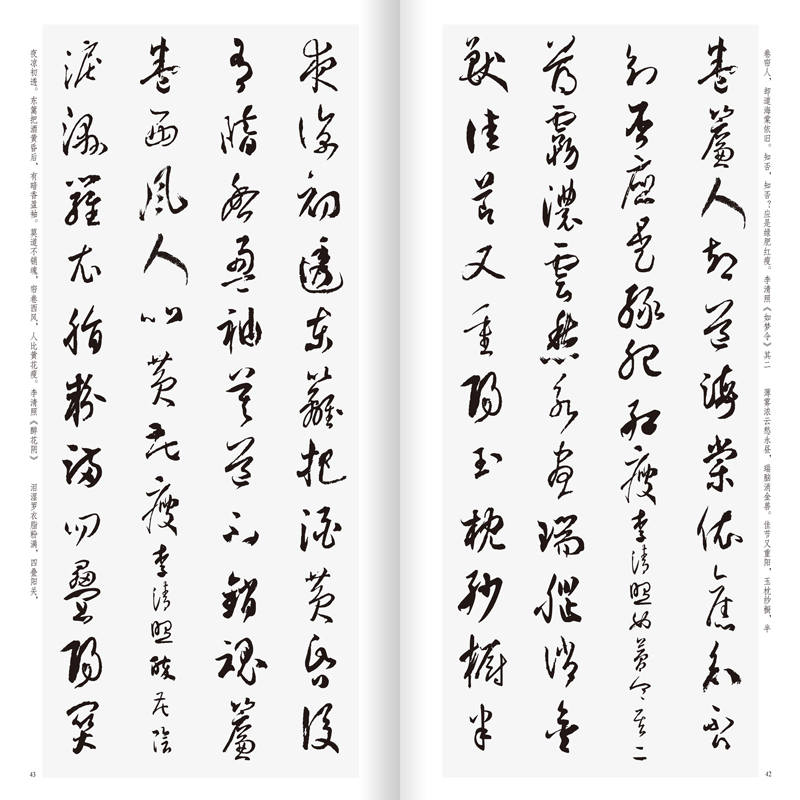 卷帘人、却道海棠依旧。知否,知否?应是绿肥红瘦。李清照《如梦令》其二 薄雾浓云愁永昼,瑞脑消金兽。佳节又重阳,玉枕纱橱,半
卷簾人却道海棠依舊知否
知否應是緑肥紅瘦李清照如夢令其二
薄霧濃雲愁永晝瑞腦消金
獸佳節又重陽玉枕紗櫥半
42
夜涼初透東籬把酒黄昏後
有暗香盈袖莫道不銷魂簾
卷西風人比黄花瘦李清照醉花陰
淚濕羅衣脂粉滿四疊陽關
夜凉初透。东篱把酒黄昏后,有暗香盈袖。莫道不销魂,帘卷西风,人比黄花瘦。李清照《醉花阴》 泪湿罗衣脂粉满,四叠阳关,
43